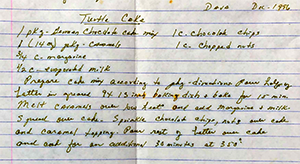 Dec - 1986
Turtle Cake
1 pkg - German Chocolate cake mix 1 c. chocolate chips
1 (14 oz) pkg - caramels 1 c. chopped nuts
3/4 c. margarine
1/2 c. evaporated milk
Prepare cake mix according to pkg - directions. Pour half of
batter in greased 9 x 13 inch baking dish & bake for 15 min.
Melt caramels over low heat and add margarine & milk.
Spread over cake. Sprinkle chocolate chips, nuts over cake
and caramel topping. Pour rest of batter over cake
and bake for an additional 30 minutes at 350°